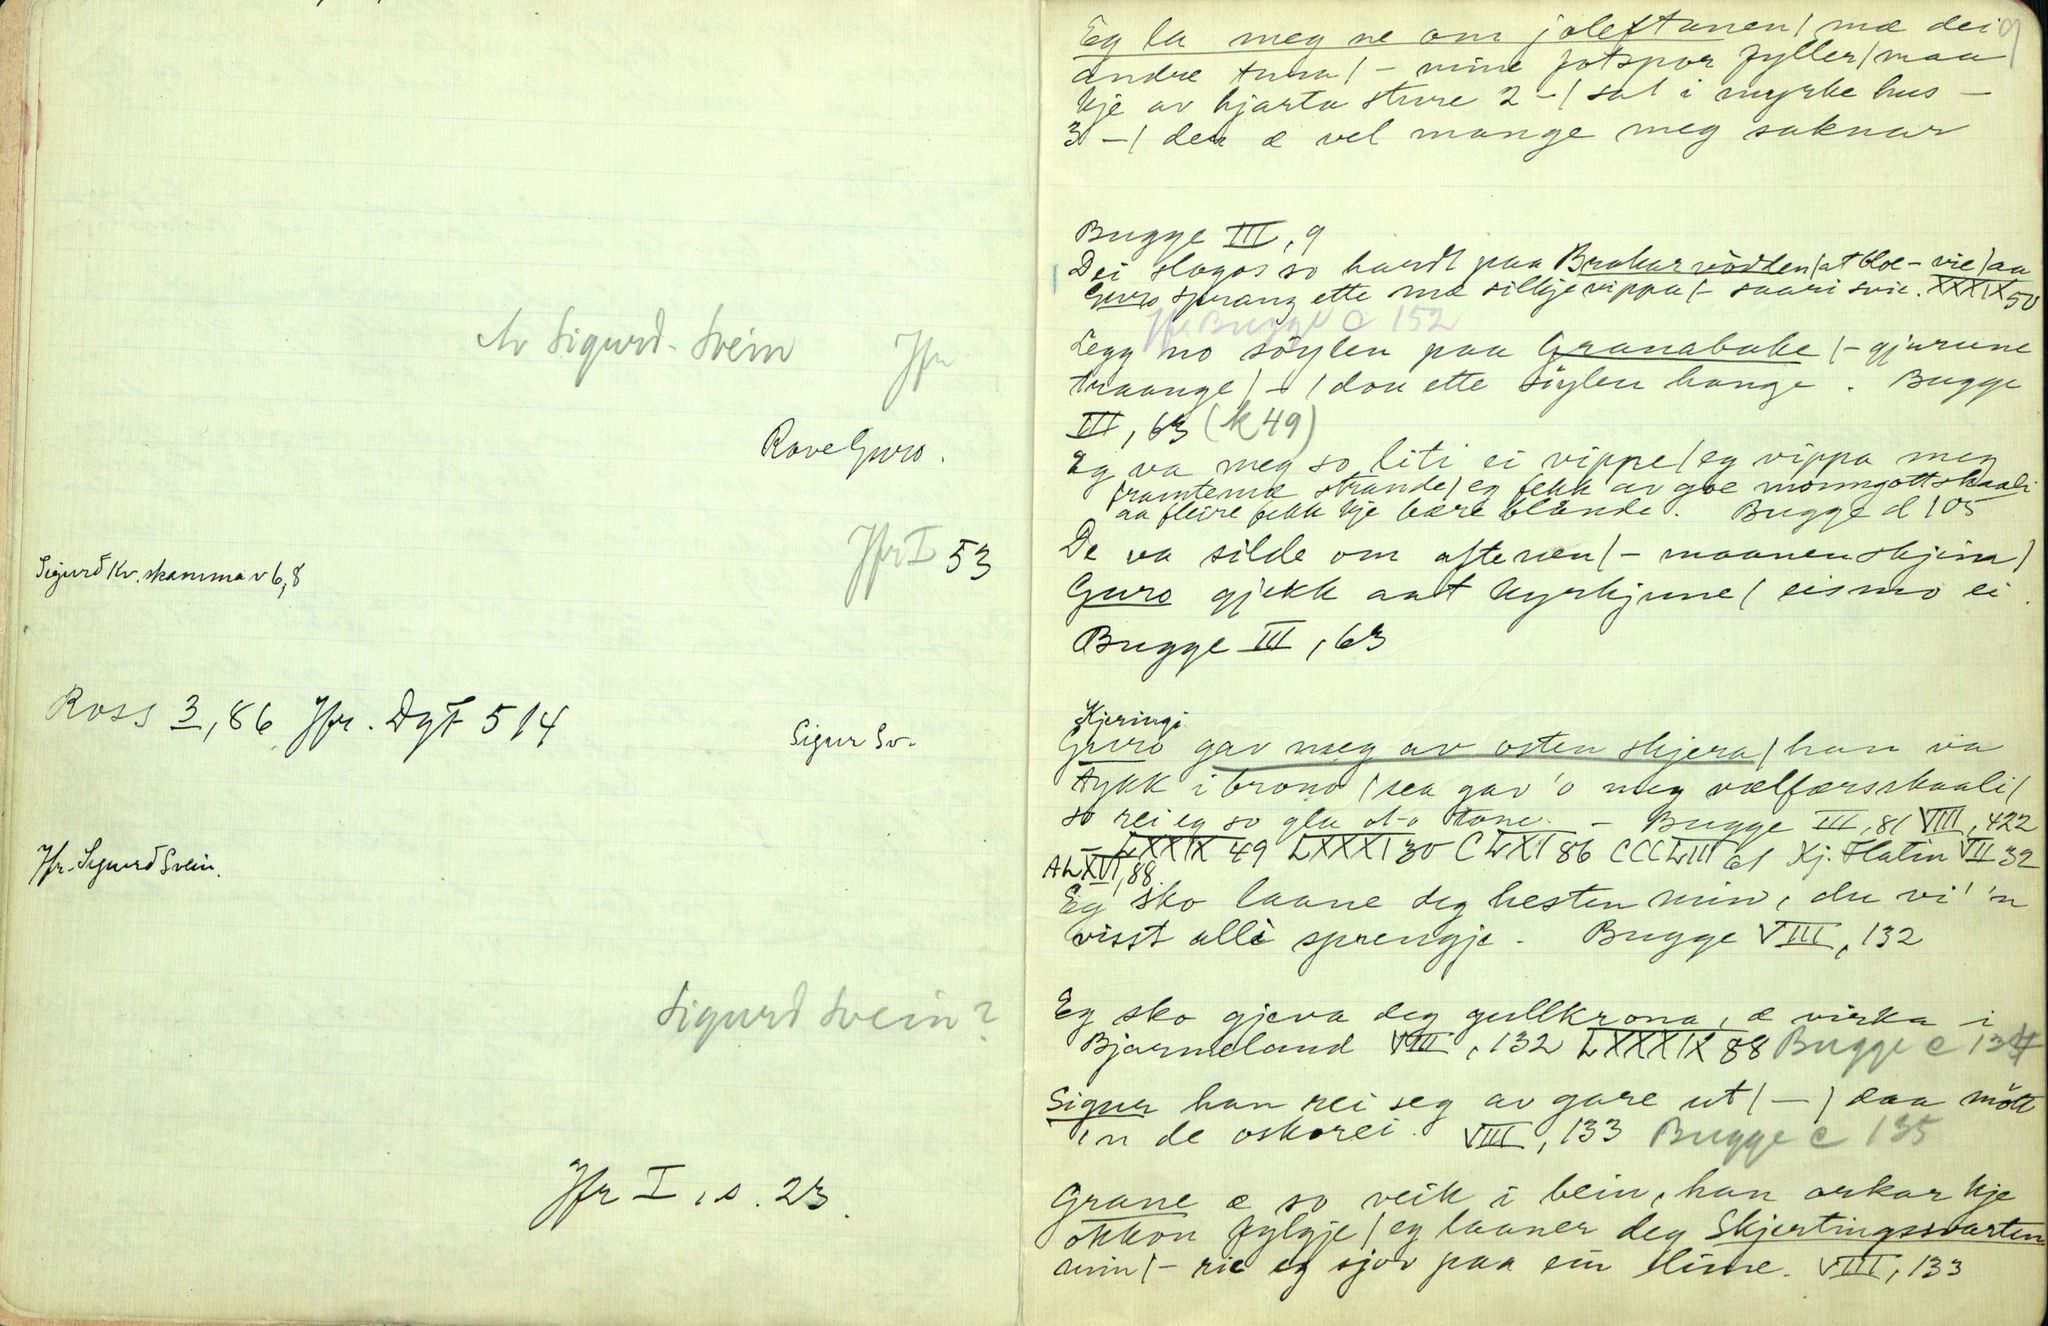 Av Sigurd Svein Jfr
RoveGuro.
Jfr I 53
Sigurd Kv. skamma v 6,8
Ross 3,86 Jfr. DgF 514
Sigur Sv.
Jfr. Sigurd Svein.
Sigurd Svein?
Jfr I, s. 23.
9
Eg la meg ne om joleftanen / mæ dei
andre / – mine fotspor fyller / maa
kje av hjarta sture 2 – / sat i myrke hus –
3 – / der æ vel mange meg saknar
Bugge III, 9
Dei slogos so hardt paa Brokarvodden / at bloe – vie / aa
Guro sprang ette mæ silkjevippa / – saari svie. XXXIX 50
Jfr Bugge c 152
Legg no söylen paa Granabake / – gjurune
traange / – / dou ette söylen hange. Bugge
III, 63 (k 49)
Eg va meg so liti ei vippe / eg vippa meg
framtemæ strande / eg fekk av goe monngottskaali
aa fleire fekk kje bære blånde. Bugge d 105
De va silde om aftenen / – maanen skjine /
Guro gjekk aat kyrkjune / eismo ei.
Bugge III, 63
Kjeringi
Guro gav meg av osten skjera / han va
tykk i brono / sea gav 'o meg vælfærsskaali /
so rei eg so gla – Bugge III, 81 VIII, 422
– LXXIX 49 LXXXI 30 CLXI 86 CCCLIII 61 Kj. Flatin VII 32
A LXVI, 88.
Eg sko laane deg hesten min, du vi' 'n
visst alli sprengje. Bugge VIII, 132
Eg sko gjeva deg gullkrona, æ virka i
Bjarmeland VIII, 132 LXXXIX 88 Bugge c 134
Sigur han rei seg av gare ut / – / daa mött
'n de oskorei. VIII, 133 Bugge c 135
Grane æ so veik i bein, han orkar kje
okkon fylgje / eg laaner deg Skjertingssvarten
min / – rie eg sjov paa ein slime. VIII, 133